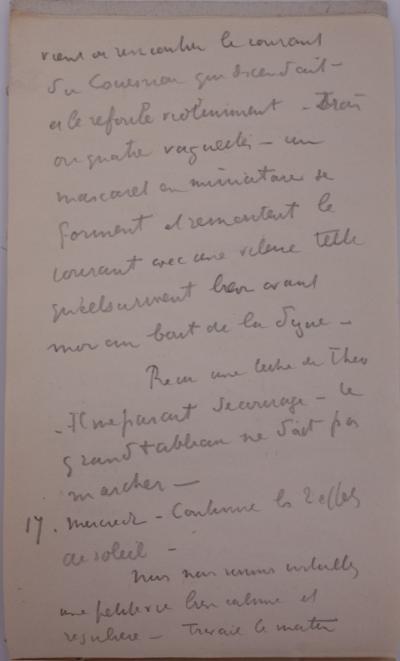 vient rencontrer le courant
du Couesnon qui descendait -
et le refoule violemment - Trois
ou quatre vaguelettes - un
mascaret en miniature se
forment et remontent le
courant avec une vitesse telle
qu'elles arrivent bien avant
moi au bout de la digue -
Reçu une lettre de Théo
- Il me parait découragé - le
grand tableau ne doit pas
marcher -
17. Mercredi - Continue les 2 effets
de soleil -
Nous nous sommes installés
une petite vie bien calme et
régulière - Travaille le matin